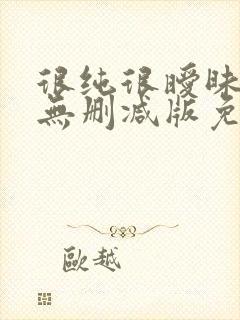 很纯很暧昧
無删减版免
歐越